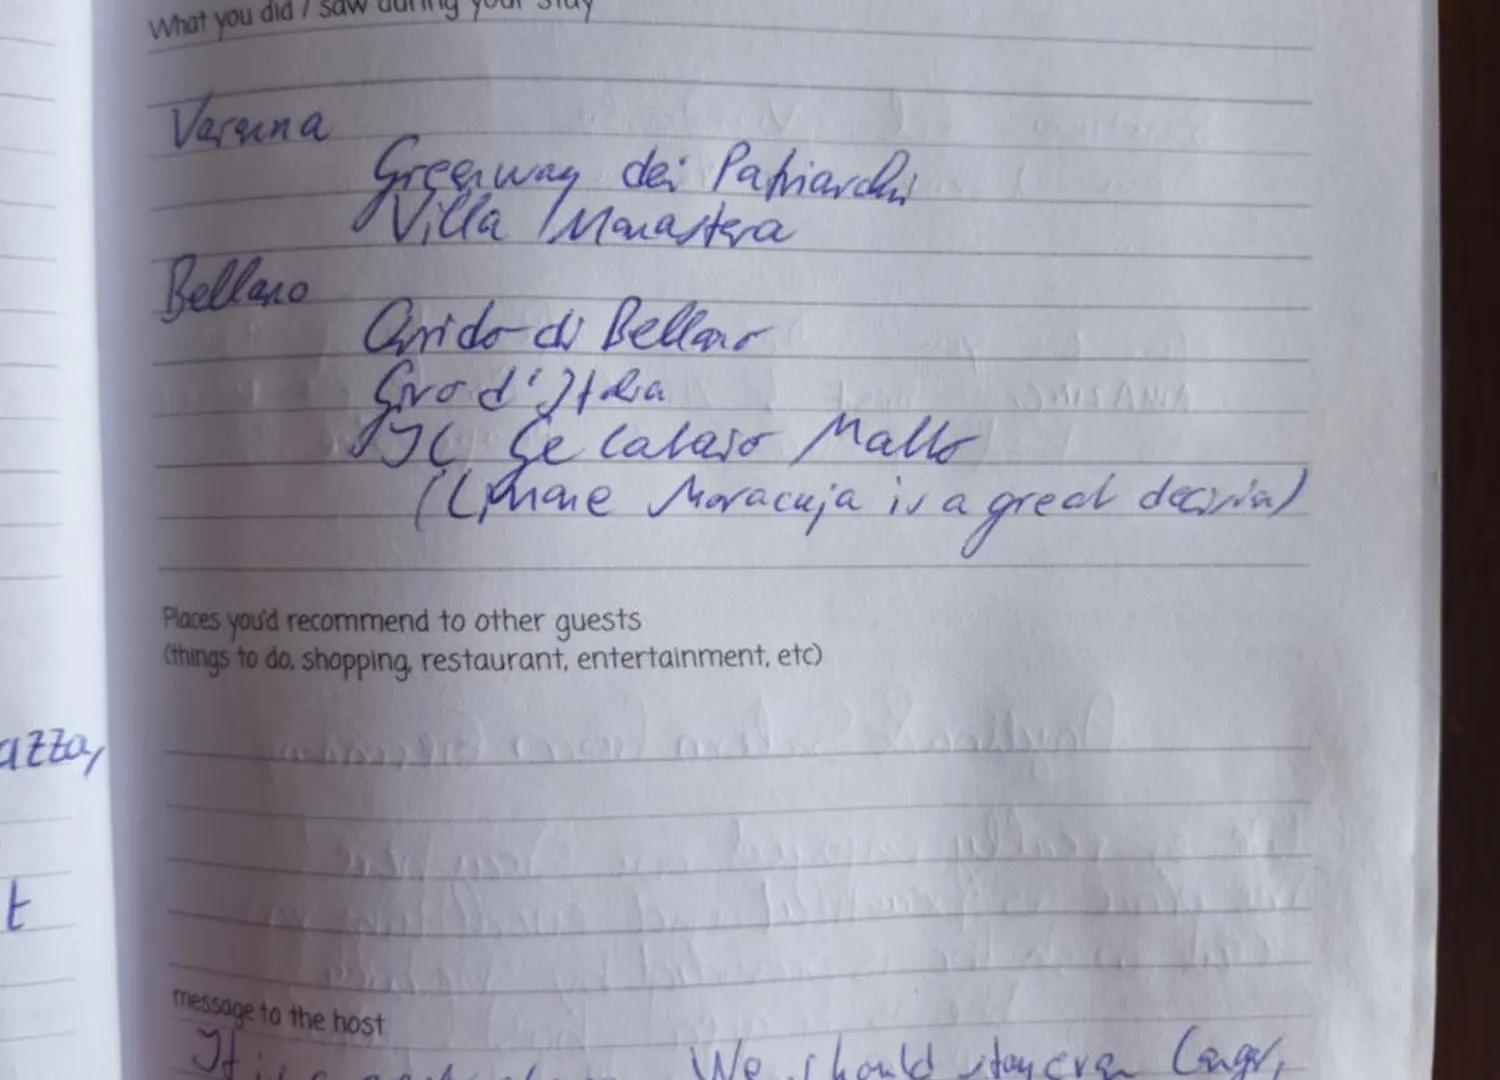 What you did / saw during your stay
Varenna
Greenway dei Patriarchi
Villa Monastera
Bellano
Orrido di Bellano
Giro d'Italia
Il Gelataio Matto
(Limone Maracuja is a great decision)
Places you'd recommend to other guests
(things to do, shopping, restaurant, entertainment, etc)
azza,
t
message to the host
It is We should stay even longer,